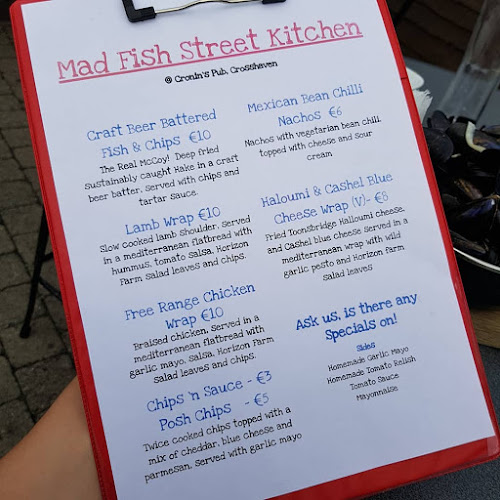 Mad Fish Street Kitchen
@ Cronin's Pub, Crosshaven
Craft Beer Battered
Fish & Chips €10
The Real McCoy! Deep fried
sustainably caught Hake in a craft
beer batter, served with chips and
tartar sauce.
Lamb Wrap €10
Slow cooked lamb shoulder, served
in a mediterranean flatbread with
hummus, tomato salsa, Horizon
Farm salad leaves and chips.
Free Range Chicken
Wrap €10
Braised chicken, served in a
mediterranean flatbread with
garlic mayo, salsa, Horizon Farm
salad leaves and chips.
Chips 'n Sauce - €3
Posh Chips - €5
Twice cooked chips topped with a
mix of cheddar, blue cheese and
parmesan, served with garlic mayo
Mexican Bean Chilli
Nachos €6
Nachos with vegetarian bean chilli,
topped with cheese and sour
cream
Haloumi & Cashel Blue
Cheese Wrap (V)- €8
Fried Toonsbridge Halloumi cheese,
and Cashel blue cheese served in a
mediterranean wrap with wild
garlic pesto and Horizon Farm
salad leaves
Ask us, is there any
Specials on!
Sides
Homemade Garlic Mayo
Homemade Tomato Relish
Tomato Sauce
Mayonnaise